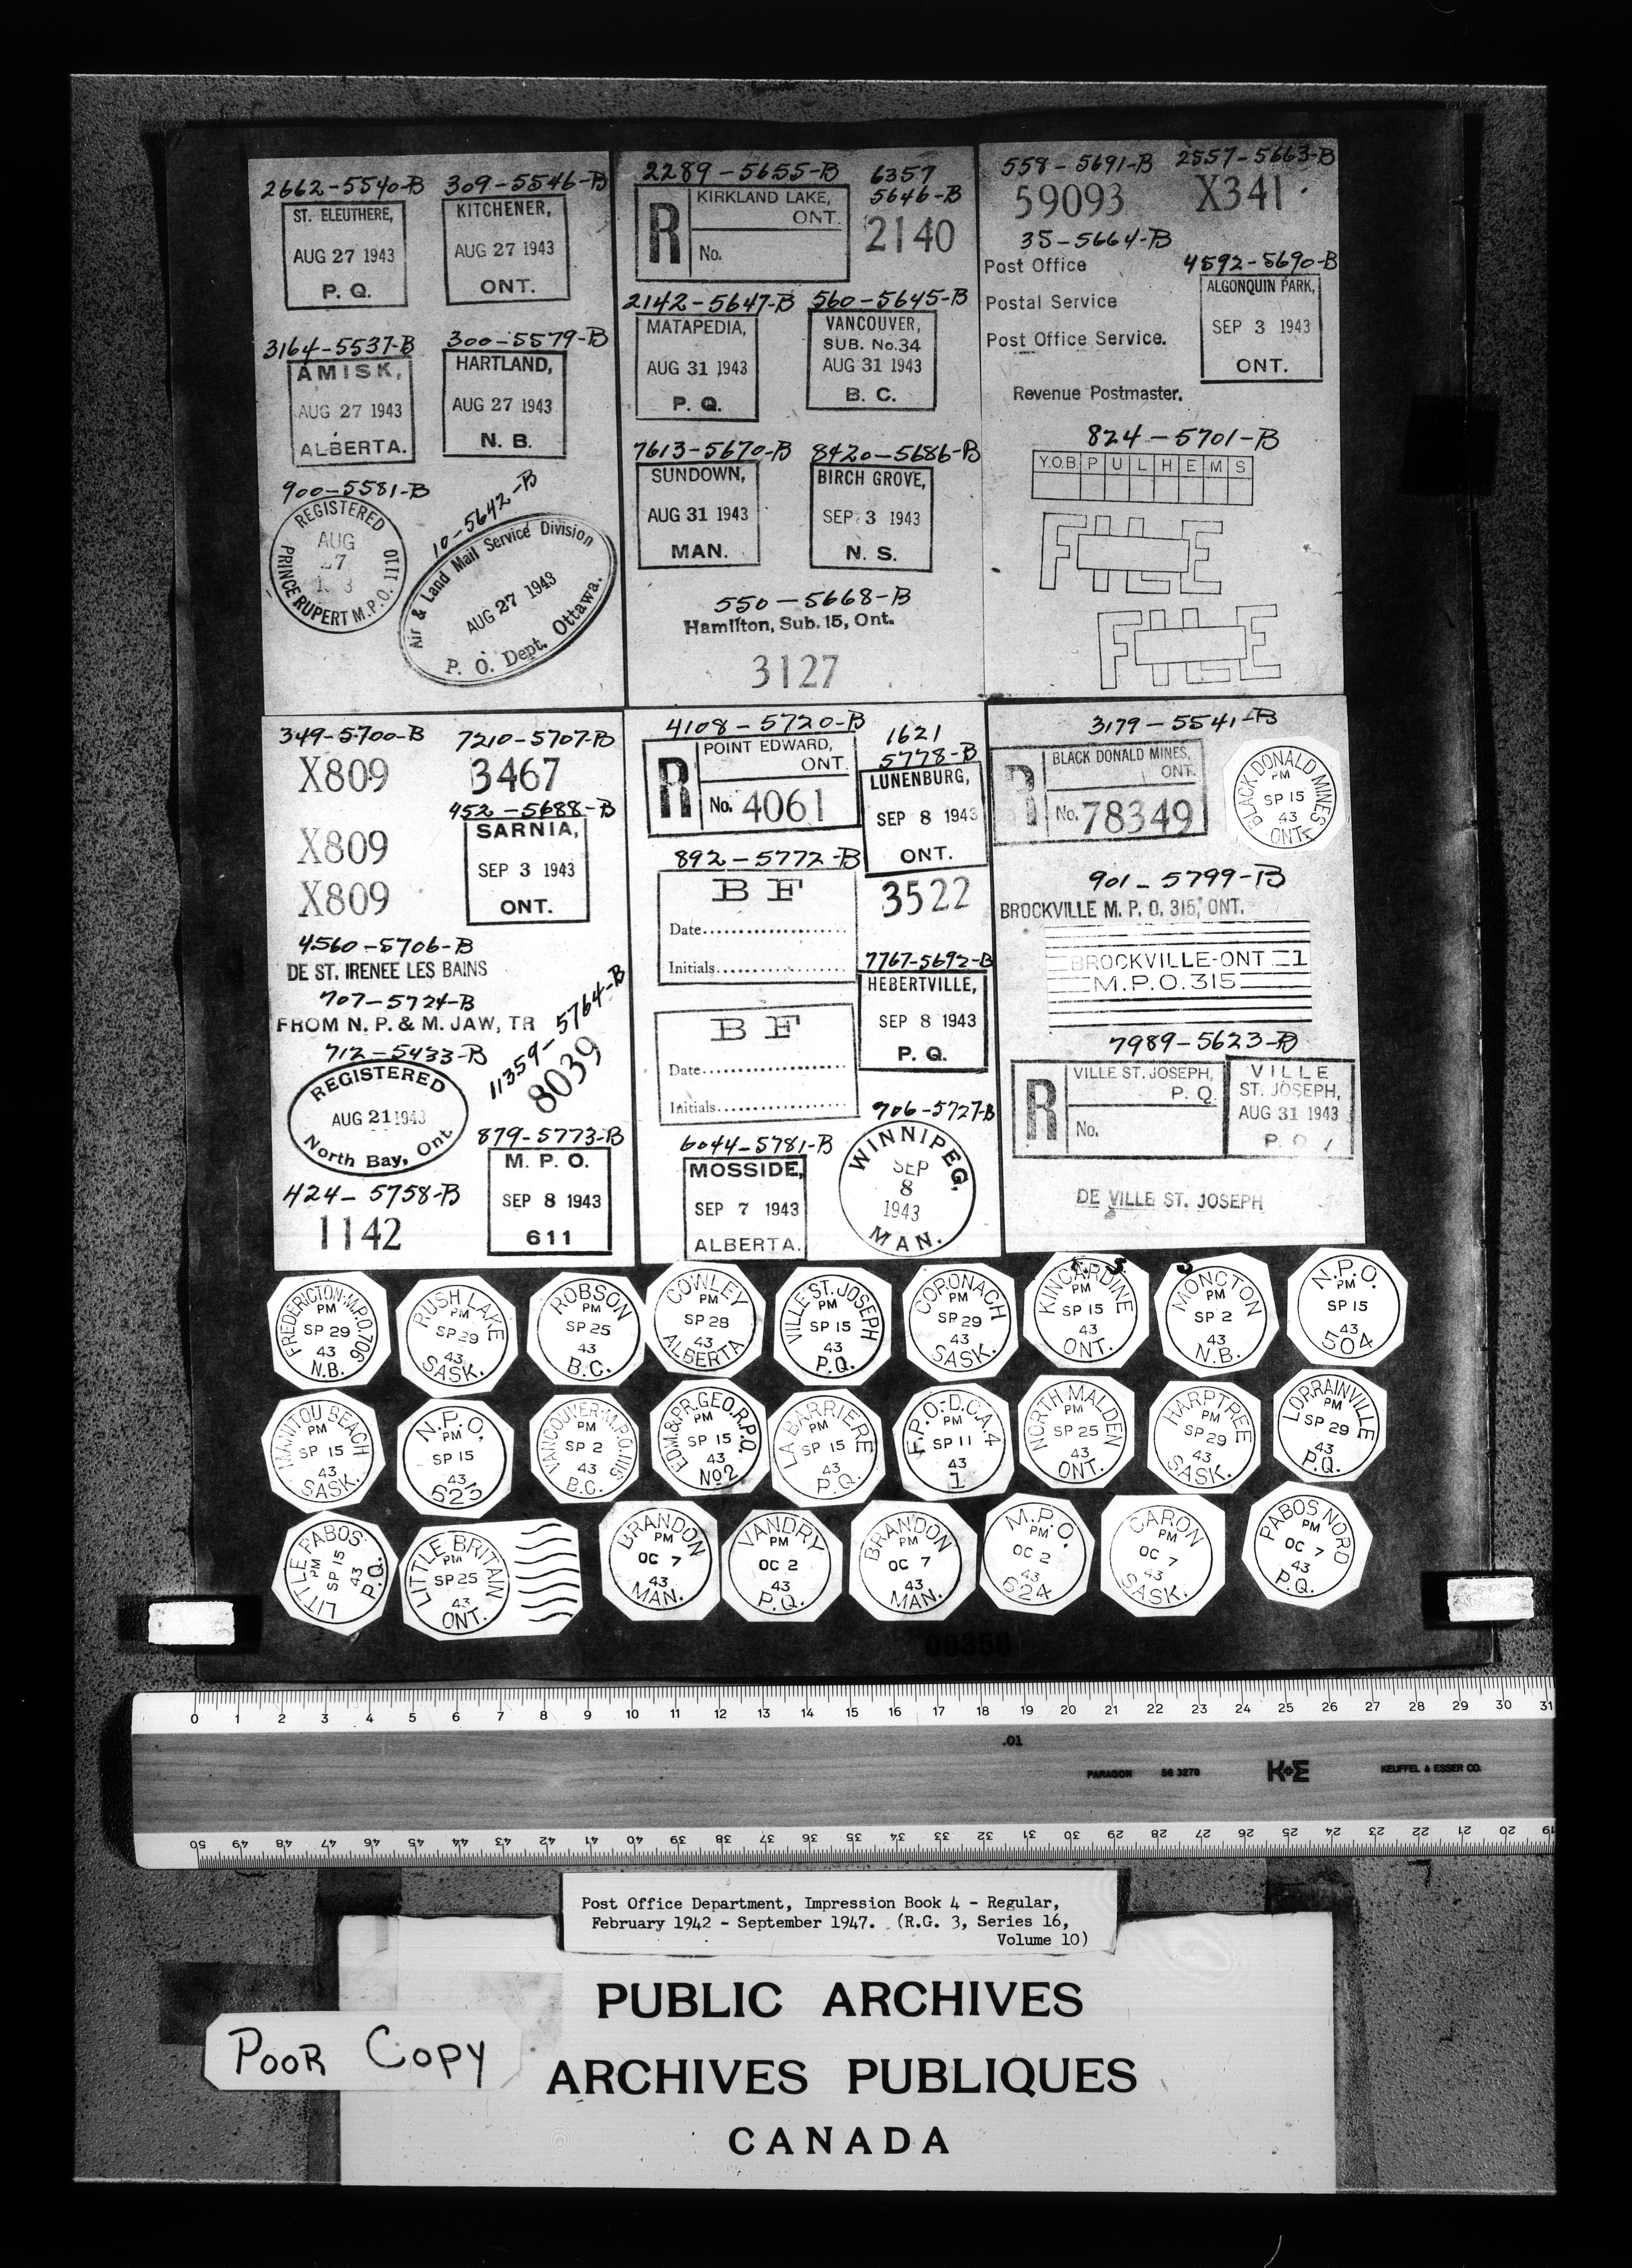 2662-5540-B 309-5546-B
ST. ELEUTHERE,
AUG 27 1943
P. Q.
KITCHENER,
AUG 27 1943
ONT.
3164-5537-B 300-5579-B
AMISK,
AUG 27 1943
ALBERTA.
HARTLAND,
AUG 27 1943
N. B.
900-5581-B
REGISTERED
AUG
27
PRINCE RUPERT M.P.O. 1110
10-5642-B
Air & Land Mail Service Division
AUG 27 1943
P. O. Dept. Ottawa.
2289-5655-B
R KIRKLAND LAKE,
ONT.
No.
6357
5646-B
2140
2142-5647-B 560-5645-B
MATAPEDIA,
AUG 31 1943
P. Q.
VANCOUVER,
SUB. No.34
AUG 31 1943
B. C.
7613-5670-B 8420-5686-B
SUNDOWN,
AUG 31 1943
MAN.
BIRCH GROVE,
SEP 3 1943
N. S.
550-5668-B
Hamilton, Sub. 15, Ont.
3127
558-5691-B 2557-5663-B
59093 X341
35-5664-B
Post Office
Postal Service
Post Office Service.
4592-5690-B
ALGONQUIN PARK,
SEP 3 1943
ONT.
Revenue Postmaster.
824-5701-B
Y.O.B. P U L H E M S
FILE
FILE
349-5700-B 7210-5707-B
X809 3467
X809
X809
452-5688-B
SARNIA,
SEP 3 1943
ONT.
4560-5706-B
DE ST. IRENEE LES BAINS
707-5724-B
FROM N. P. & M. JAW, TR
712-5433-B
REGISTERED
AUG 21 1943
North Bay, Ont
11359-5764-B
8039
424-5758-B
1142
879-5773-B
M. P. O.
SEP 8 1943
611
4108-5720-B
R POINT EDWARD,
ONT.
No. 4061
1621
5778-B
LUNENBURG,
SEP 8 1943
ONT.
892-5772-B
B F
Date
Initials
3522
7767-5692-B
HEBERTVILLE,
SEP 8 1943
P. Q.
B F
Date
Initials
6044-5781-B
MOSSIDE,
SEP 7 1943
ALBERTA.
906-5727-B
WINNIPEG,
SEP
8
1943
MAN.
3179-5541-B
R BLACK DONALD MINES,
ONT.
No. 78349
BLACK DONALD MINES
PM
SP 15
43
ONT.
901-5799-B
BROCKVILLE M. P. O. 315, ONT.
BROCKVILLE-ONT 1
M.P.O.315
7989-5623-B
R VILLE ST. JOSEPH,
P. Q.
No.
VILLE
ST. JOSEPH,
AUG 31 1943
P. Q.
DE VILLE ST. JOSEPH
FREDERICTON-M.P.O.706
PM
SP 29
43
N.B.
RUSH LAKE
PM
SP 29
43
SASK.
ROBSON
PM
SP 25
43
B.C.
COWLEY
PM
SP 28
43
ALBERTA
VILLE ST. JOSEPH
PM
SP 15
43
P.Q.
CORONACH
PM
SP 29
43
SASK.
KINCARDINE
PM
SP 15
43
ONT.
MONCTON
PM
SP 2
43
N.B.
N.P.O.
PM
SP 15
43
504
MANITOU BEACH
PM
SP 15
43
SASK.
N.P.O.
PM
SP 15
43
623
VANCOUVER-M.P.O.1115
PM
SP 2
43
B.C.
EDM.&PR.GEO.R.P.O.
PM
SP 15
43
No2
LA BARRIERE
PM
SP 15
43
P.Q.
F.P.O.-D.C.A.4
PM
SP 11
43
1
NORTH MALDEN
PM
SP 25
43
ONT.
HARPTREE
PM
SP 29
43
SASK.
LORRAINVILLE
PM
SP 29
43
P.Q.
LITTLE PABOS
PM
SP 15
43
P.Q.
LITTLE BRITAIN
PM
SP 25
43
ONT.
BRANDON
PM
OC 7
43
MAN.
VANDRY
PM
OC 2
43
P.Q.
BRANDON
PM
OC 7
43
MAN.
M.P.O.
PM
OC 2
43
624
CARON
PM
OC 7
43
SASK.
PABOS NORD
PM
OC 7
43
P.Q.
00356
0 1 2 3 4 5 6 7 8 9 10 11 12 13 14 15 16 17 18 19 20 21 22 23 24 25 26 27 28 29 30 31
.01
PARAGON 56 3276 K+E KEUFFEL & ESSER CO.
50 49 48 47 46 45 44 43 42 41 40 39 38 37 36 35 34 33 32 31 30 29 28 27 26 25 24 23 22 21 20 19
Post Office Department, Impression Book 4 - Regular,
February 1942 - September 1947. (R.G. 3, Series 16,
Volume 10)
PUBLIC ARCHIVES
POOR COPY
ARCHIVES PUBLIQUES
CANADA